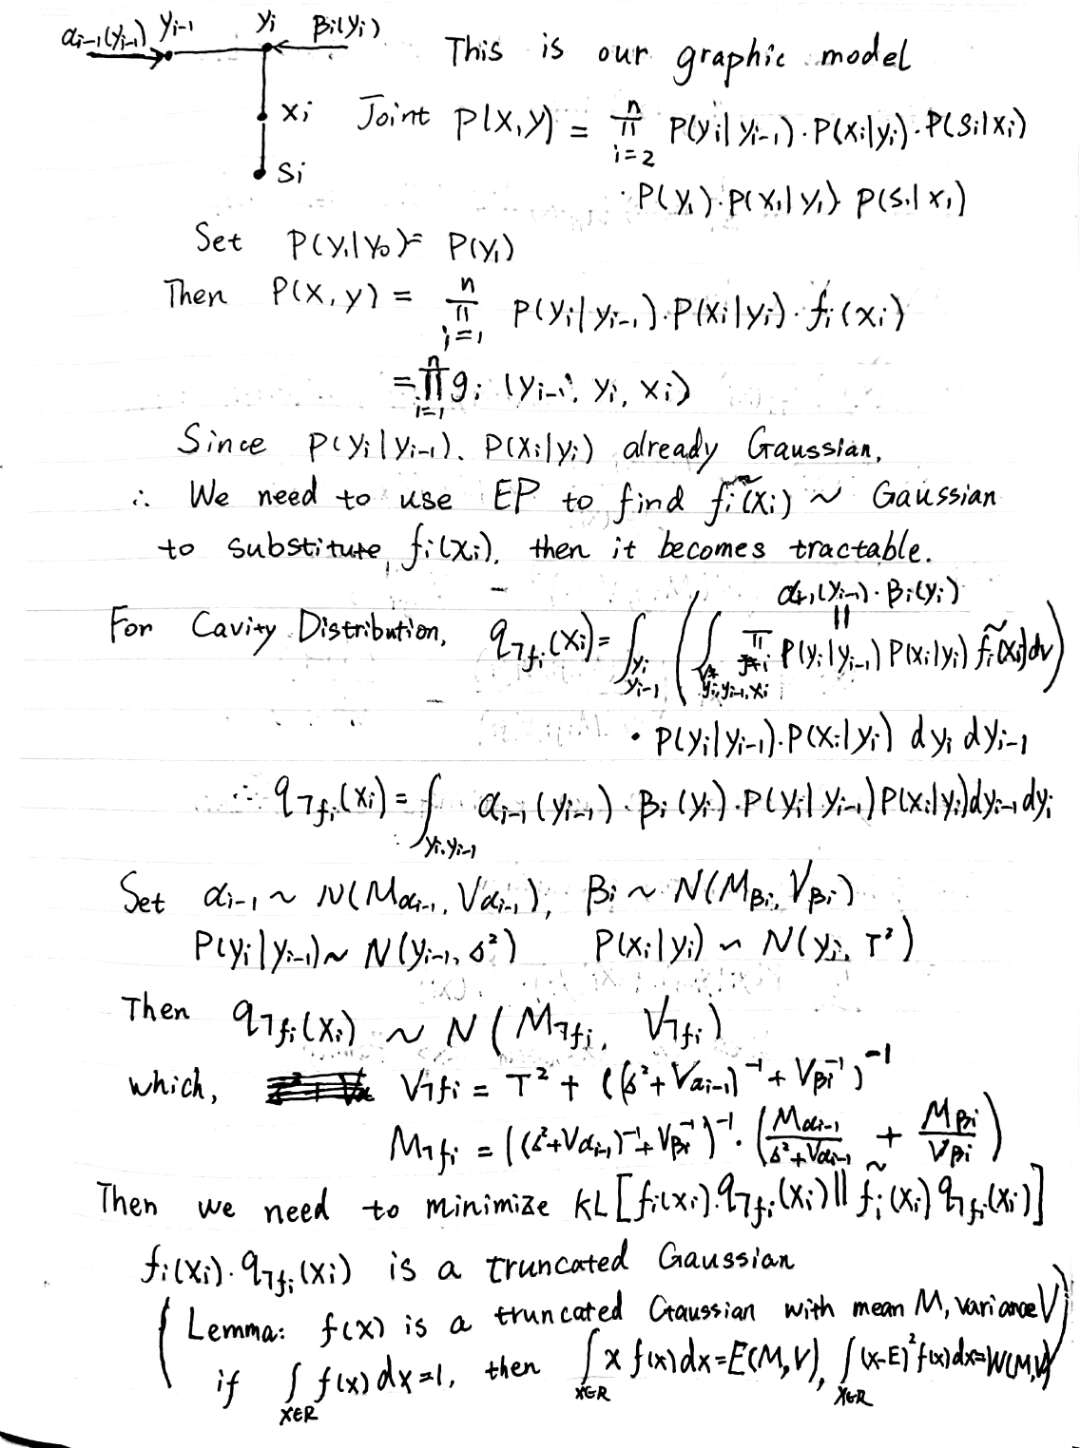 αi-1(yi-1) yi-1 yi βi(yi)
This is our graphic model
xi Joint P(X,Y) = ∏_{i=2}^{n} P(yi|yi-1)·P(xi|yi)·P(si|xi)
si ·P(y1)·P(x1|y1) P(s1|x1)
Set P(y1|y0) = P(y1)
Then P(X,y) = ∏_{i=1}^{n} P(yi|yi-1)·P(xi|yi)·fi(xi)
= ∏_{i=1}^{n} gi (yi-1, yi, xi)
Since P(yi|yi-1), P(xi|yi) already Gaussian,
∴ We need to use EP to find f̃i(xi) ~ Gaussian
to substitute fi(xi), then it becomes tractable.
αi-1(yi-1)·βi(yi)
||
For Cavity Distribution, q¬fi(xi) = ∫_{yi, yi-1} (∫_{yi,yi-1,xi} ∏_{j≠i} P(yi|yi-1) P(xi|yi) f̃i(xi)dv)
· P(yi|yi-1)·P(xi|yi) dyi dyi-1
∴ q¬fi(xi) = ∫_{yi,yi-1} αi-1(yi-1)·βi(yi)·P(yi|yi-1)P(xi|yi)dyi-1 dyi
Set αi-1 ~ N(Mαi-1, Vαi-1), βi ~ N(Mβi, Vβi)
P(yi|yi-1) ~ N(yi-1, σ²) P(xi|yi) ~ N(yi, T²)
Then q¬fi(xi) ~ N(M¬fi, V¬fi)
which, V¬fi = T² + ((σ²+Vαi-1)⁻¹ + Vβi⁻¹)⁻¹
M¬fi = ((σ²+Vαi-1)⁻¹+Vβi⁻¹)⁻¹·(Mαi-1/(σ²+Vαi-1) + Mβi/Vβi)
Then we need to minimize KL[fi(xi)·q¬fi(xi)||f̃i(xi)q¬fi(xi)]
fi(xi)·q¬fi(xi) is a truncated Gaussian
(Lemma: f(x) is a truncated Gaussian with mean M, variance V
if ∫_{x∈R} f(x)dx=1, then ∫_{x∈R} x f(x)dx=E(M,V), ∫_{x∈R} (x-E)²f(x)dx=W(M,V))